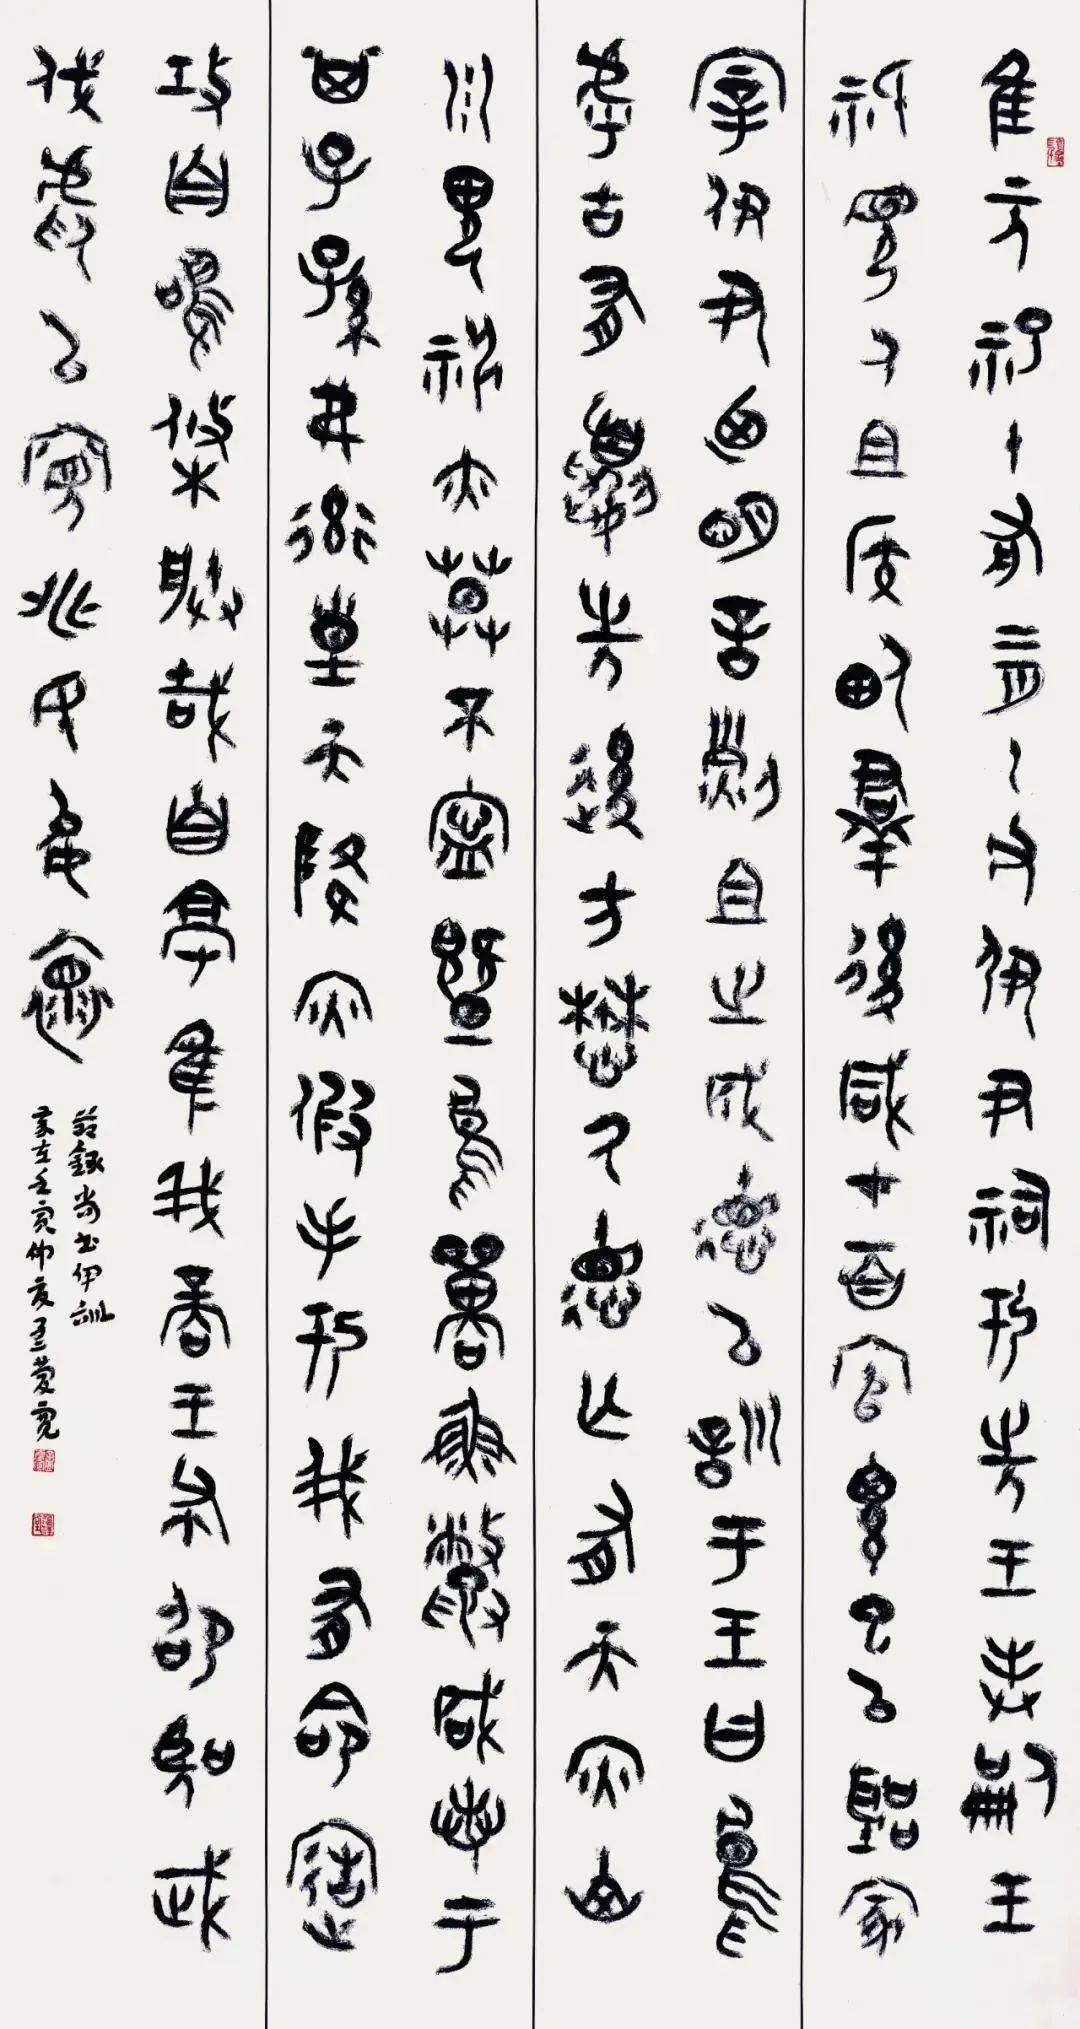 隹元祀十有二月乙丑伊尹祠于先王奉嗣王
祗見厥且侯甸群後咸才百官總己以聽冢
宰伊尹乃明言烈且之成德以訓于王曰烏
虖古有夏先後方懋厥德亡有天災山
川鬼神亦莫不寧暨鳥獸魚鱉咸若于
其子孫弗率皇天降災假手于我有命造
攻自鳴條朕哉自亳隹我商王布卲聖武
伐虐以寬兆民允懷
節錄尚书伊訓
歲在壬寅仲夏